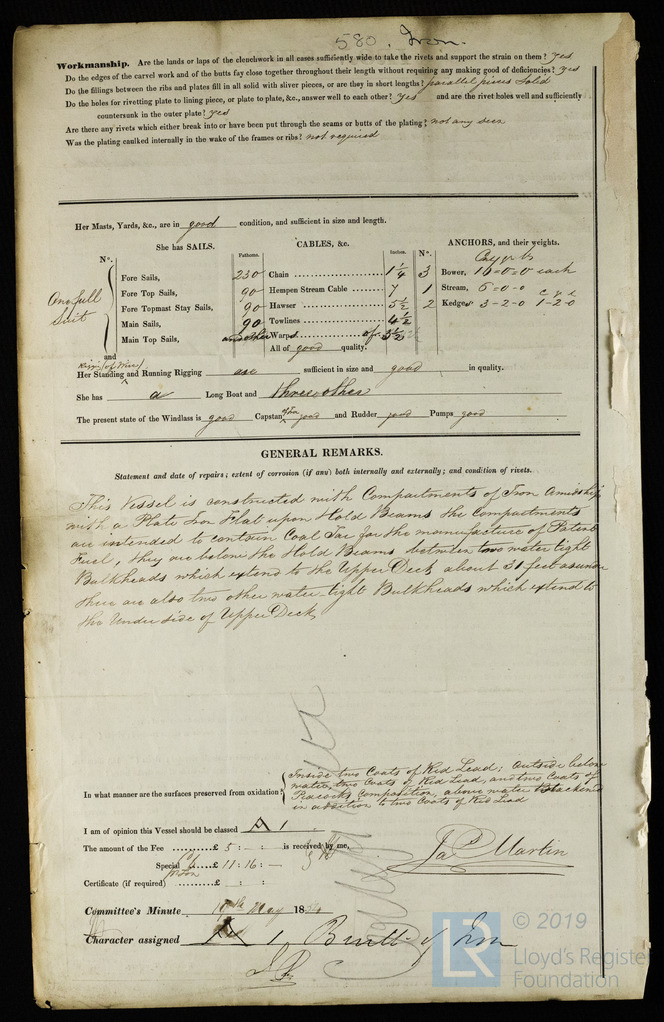 580. Iron.
Workmanship. Are the lands or laps of the clenchwork in all cases sufficiently wide to take the rivets and support the strain on them? yes
Do the edges of the carvel work and of the butts fay close together throughout their length without requiring any making good of deficiencies? yes
Do the fillings between the ribs and plates fill in all solid with sliver pieces, or are they in short lengths? parallel pieces Solid
Do the holes for rivetting plate to lining piece, or plate to plate, &c., answer well to each other? yes and are the rivet holes well and sufficiently
countersunk in the outer plate? yes
Are there any rivets which either break into or have been put through the seams or butts of the plating? not any seen
Was the plating caulked internally in the wake of the frames or ribs? not required
Her Masts, Yards, &c., are in good condition, and sufficient in size and length.
She has SAILS. CABLES, &c. ANCHORS, and their weights.
N°. Fathoms. Inches. N°. C qr lb
Fore Sails, 230 Chain 1 1/4 3 Bower, 16=0=0 each
One full Suit Fore Top Sails, 90 Hempen Stream Cable 7 1 Stream, 6=0-0
Fore Topmast Stay Sails, 90 Hawser 5 1/2 2 Kedges 3-2-0 1-2-0
Main Sails, 90 Towlines 4 1/2
Main Top Sails, another Warps of 3 1/2
and All of good quality.
Her Standing and Running Rigging are sufficient in size and good in quality.
She has a Long Boat and three others
The present state of the Windlass is good Capstan good and Rudder good Pumps good
GENERAL REMARKS.
Statement and date of repairs; extent of corrosion (if any) both internally and externally; and condition of rivets.
This Vessel is constructed with Compartments of Iron Amidships
with a Plate Iron Flat upon Hold Beams the Compartments
are intended to contain Coal Tar for the manufacture of Patent
Fuel, they are below the Hold Beams between two water tight
Bulkheads which extend to the Upper Deck about 31 feet asunder
there are also two other water-tight Bulkheads which extend to
the Under side of Upper Deck
In what manner are the surfaces preserved from oxidation? Inside two Coats of Red Lead; Outside below
water, two Coats of Red Lead, and two Coats of
Peacocks Composition, above water Blackened
in addition to two Coats of Red Lead
I am of opinion this Vessel should be classed A 1
The amount of the Fee £ 5 : - : is received by me,
Special £ 11 : 16 : - Jas Martin
Certificate (if required) £ : :
Committee's Minute 19th May 1854
Character assigned A 1 Built of Iron
© 2019
LR Lloyd's Register
Foundation